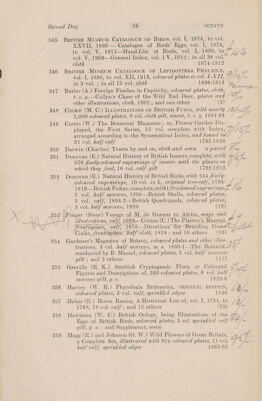 Second Day 36 OCTAVO
345 BRITISH MUSEUM CATALOGUE OF BIRDS, vol. I, 1874, to vol.
XXVII, 1895 — Catalogue of Birds' Eggs, vol. I, 1874,
to vol. V, 1912—Hand-List of Birds, vol. I, 1899, to
vol. V, 1909—General Index, vol. I-V, 1912; in all 38 vol.
cloth 1874-1912
346 BRITISH MUSEUM CATALOGUE OF LEPIDOPTERA PHALÆNÆ,
vol. I, 1898, to vol. XII, 1913, coloured plates to vol. I-XII,
in 3 vol.; in all 15 vol. cloth 1898-1913
347 Butler (A.) Foreign Finches in Captivity, coloured plates, cloth,
t. e. g.—Collyn's Chase of the Wild Red Deer, plates and
other illustrations, cloth, 1902; and one other (3)
348 COOKE (M. C.) ILLUSTRATIONS OF BRITISH FUNGI, with nearly
2,000 coloured plates, 8 vol. cloth gilt, uncut, t. e. g. 1881-91
349 Curtis (W.) The Botanical Magazine; or, Flower Garden Displayed,
the First Series, 53 vol. complete with Index,
arranged according to the Systematical Index, and bound in
31 vol. half calf 1793-1828
350 Darwin (Charles) Tracts by and on, cloth and sewn a parcel
351 Donovan (E.) Natural History of British Insects, complete, with
576 finely-coloured engravings of insects with the plants on
which they feed, 16 vol. calf gilt 1793
352 Donovan (E.) Natural History of British Birds, with 244 finely-
coloured engravings, 10 vol. in 5,
1819—British Fishes, complete, with 120 coloured engravings, 5
vol. in 3, half morocco, 1808—British Shells, coloured plates,
5 vol. calf, 1804-3—British Quadrupeds, coloured plates,
3 vol. half morocco, 1820
353 Froger (Sieur) Voyage of M. de Gennes to Africa, maps and
illustrations, calf, 1698—Cotton (C.) The Planter's Manual,
frontispiece, calf, 1675—Directions for Breeding Game
Cocks, frontispiece, half cloth, 1818; and 10 others (13)
354 Gardener's Magazine of Botany, coloured plates and other illustrations,
3 vol. half morocco, m. e. 1850-1—The Botanist,
conducted by B. Maund, coloured plates, 6 vol. half morocco
gilt; and 2 others (11)
355 Greville (R. K.) Scottish Cryptogamic Flora, or Coloured
Figures and Descriptions of, 360 coloured plates, 6 vol. half
morocco gilt, g. e. 1823-8
356 Harvey (W. H.) Phycologia Britannica, ORIGINAL EDITION,
coloured plates, 3 vol. sprinkled edges 1846
357 Heber (R.) Horse Racing, A Historical List of, vol. I, 1751, to
1768, 18 vol. calf; and 15 others (33)
358 Hewitson (W. C.) British Oology, being Illustrations of the
Eggs of British Birds, coloured plates, 3 vol. sprinkled calf
gilt, g. e.; and Supplement, sewn
359 Hogg (R.) and Johnson (G. W.) Wild Flowers of Great Britain,
a Complete Set, illustrated with 924 coloured plates, 11 vol.
half calf, sprinkled edges 1863-80